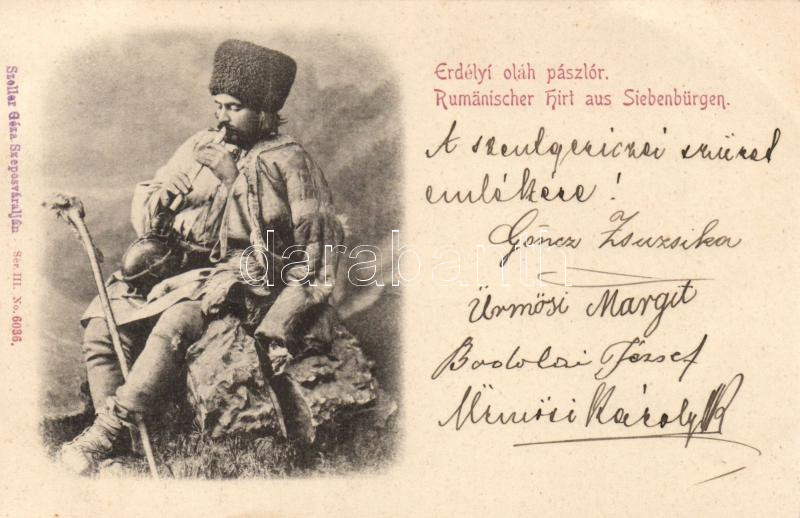 Erdélyi oláh pásztór.
Rumänischer Hirt aus Siebenbürgen.
A szentgericzei szüret
emlékere!
Göncz Zsuzsika
Ürmösi Margit
Bodolai József
Ürmösi Károly
Szeller Géza Szepesváralján. Ser. III. No. 6036.
darabanth